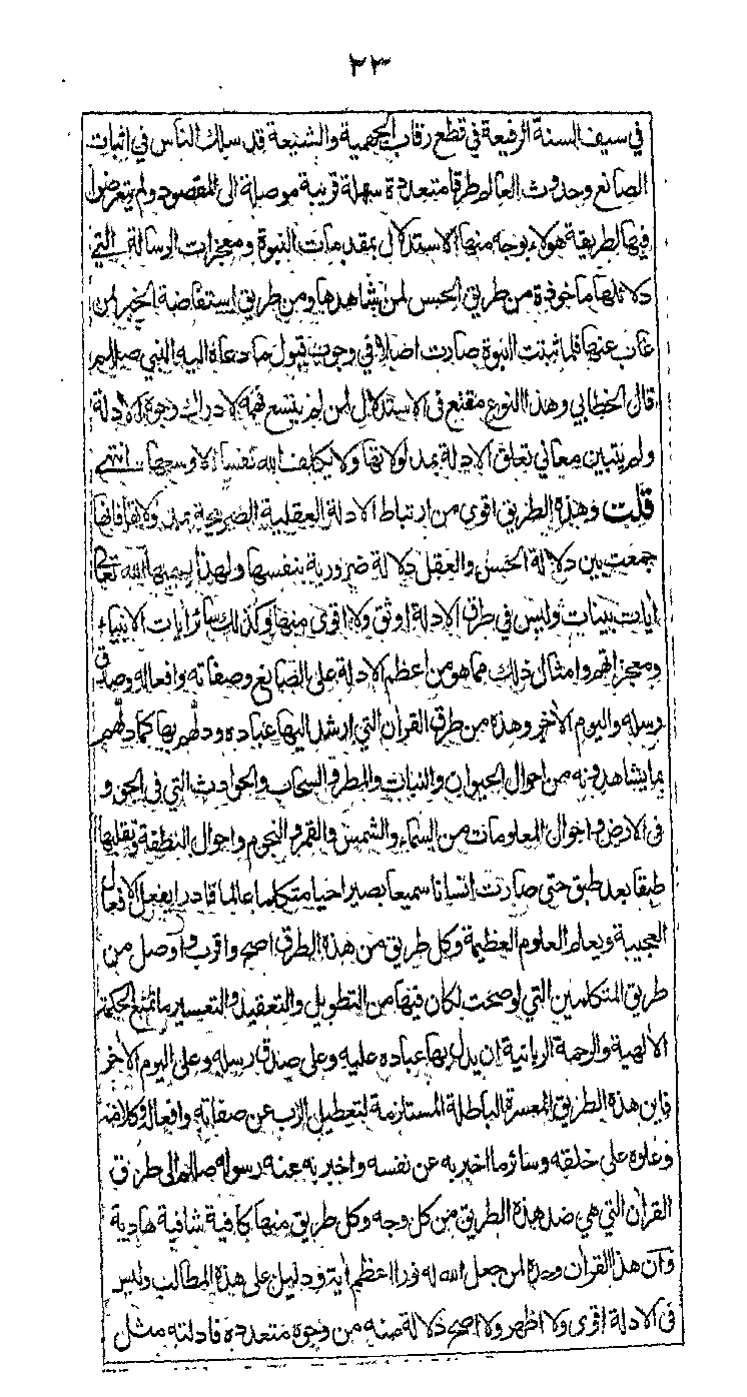 ٢٣
في سيف السنة الرفيعة في قطع رقاب الجهمية والشيعة قد سلك الناس في اثبات
الصانع وحدوث العالم طرقا متعددة سهلة قريبة موصلة الى المقصود ولم يتعرضوا
فيها لطريقة هولاء بوجه منها الاستدلال بمقدمات النبوة ومعجزات الرسالة التي
دلائلها ماخوذة من طريق الحس لمن شاهدها ومن طريق استفاضة الخبر لمن
غاب عنها فلما ثبتت النبوة صارت اصلا في وجوب قبول ما دعاة اليه النبي صللم
قال الخطابي وهذا النوع مقنع في الاستدلال لمن لم يتسع فهمه لادراك وجوة الادلة
ولم يتبين معاني تعلق الادلة بمدلولاتها ولا يكلف الله نفسا الا وسعها انتهى
قلت وهذه الطريق اقوى من ارتباط الادلة العقلية الصريحة بمدلولاتها فانها
جمعت بين دلالة الحس والعقل دلالة ضرورية بنفسها ولهذا يسميها الله تعالى
ايات بينات وليس في طرق الادلة اوثق ولا اقوى منها وكذلك سائر ايات الانبياء
ومعجزاتهم وامثال ذلك مما هو من اعظم الادلة على الصانع وصفاته وافعاله وصدق
رسله واليوم الاخر وهذه من طرق القران التي ارشد اليها عباده ودلهم بها كما دلهم
بما يشاهدونه من احوال الحيوان والنبات والمطر والسحاب والحوادث التي في الجو و
في الارض واحوال المعلومات من السماء والشمس والقمر والنجوم واحوال النطفة وتقلبها
طبقا بعد طبق حتى صارت انسانا سميعا بصيرا حيا متكلما عالما قادرا يفعل الافعال
العجيبة ويعلم العلوم العظيمة وكل طريق من هذه الطرق اصح واقرب واوصل من
طريق المتكلمين التي لو صحت لكان فيها من التطويل والتعقيد والتعسير ما تمنع الحكمة
الالهية والرحمة الربانية ان يدل بها عباده عليه وعلى صدق رسله وعلى اليوم الاخر
فاين هذة الطريق المعسرة الباطلة المستلزمة لتعطيل الرب عن صفاته وافعاله وكلامه
وعلوه على خلقه وسائر ما اخبر به عن نفسه واخبر به عنه رسوله صللم الى طريق
القران التي هي ضد هذة الطريق من كل وجه وكل طريق منها كافية شافية هادية
وان هذا القران وحدة لمن جعل الله له نورا اعظم اية ودليل على هذة المطالب وليس
في الادلة اقوى ولا اظهر ولا اصح دلالة منه من وجوه متعددة فادلته مثل